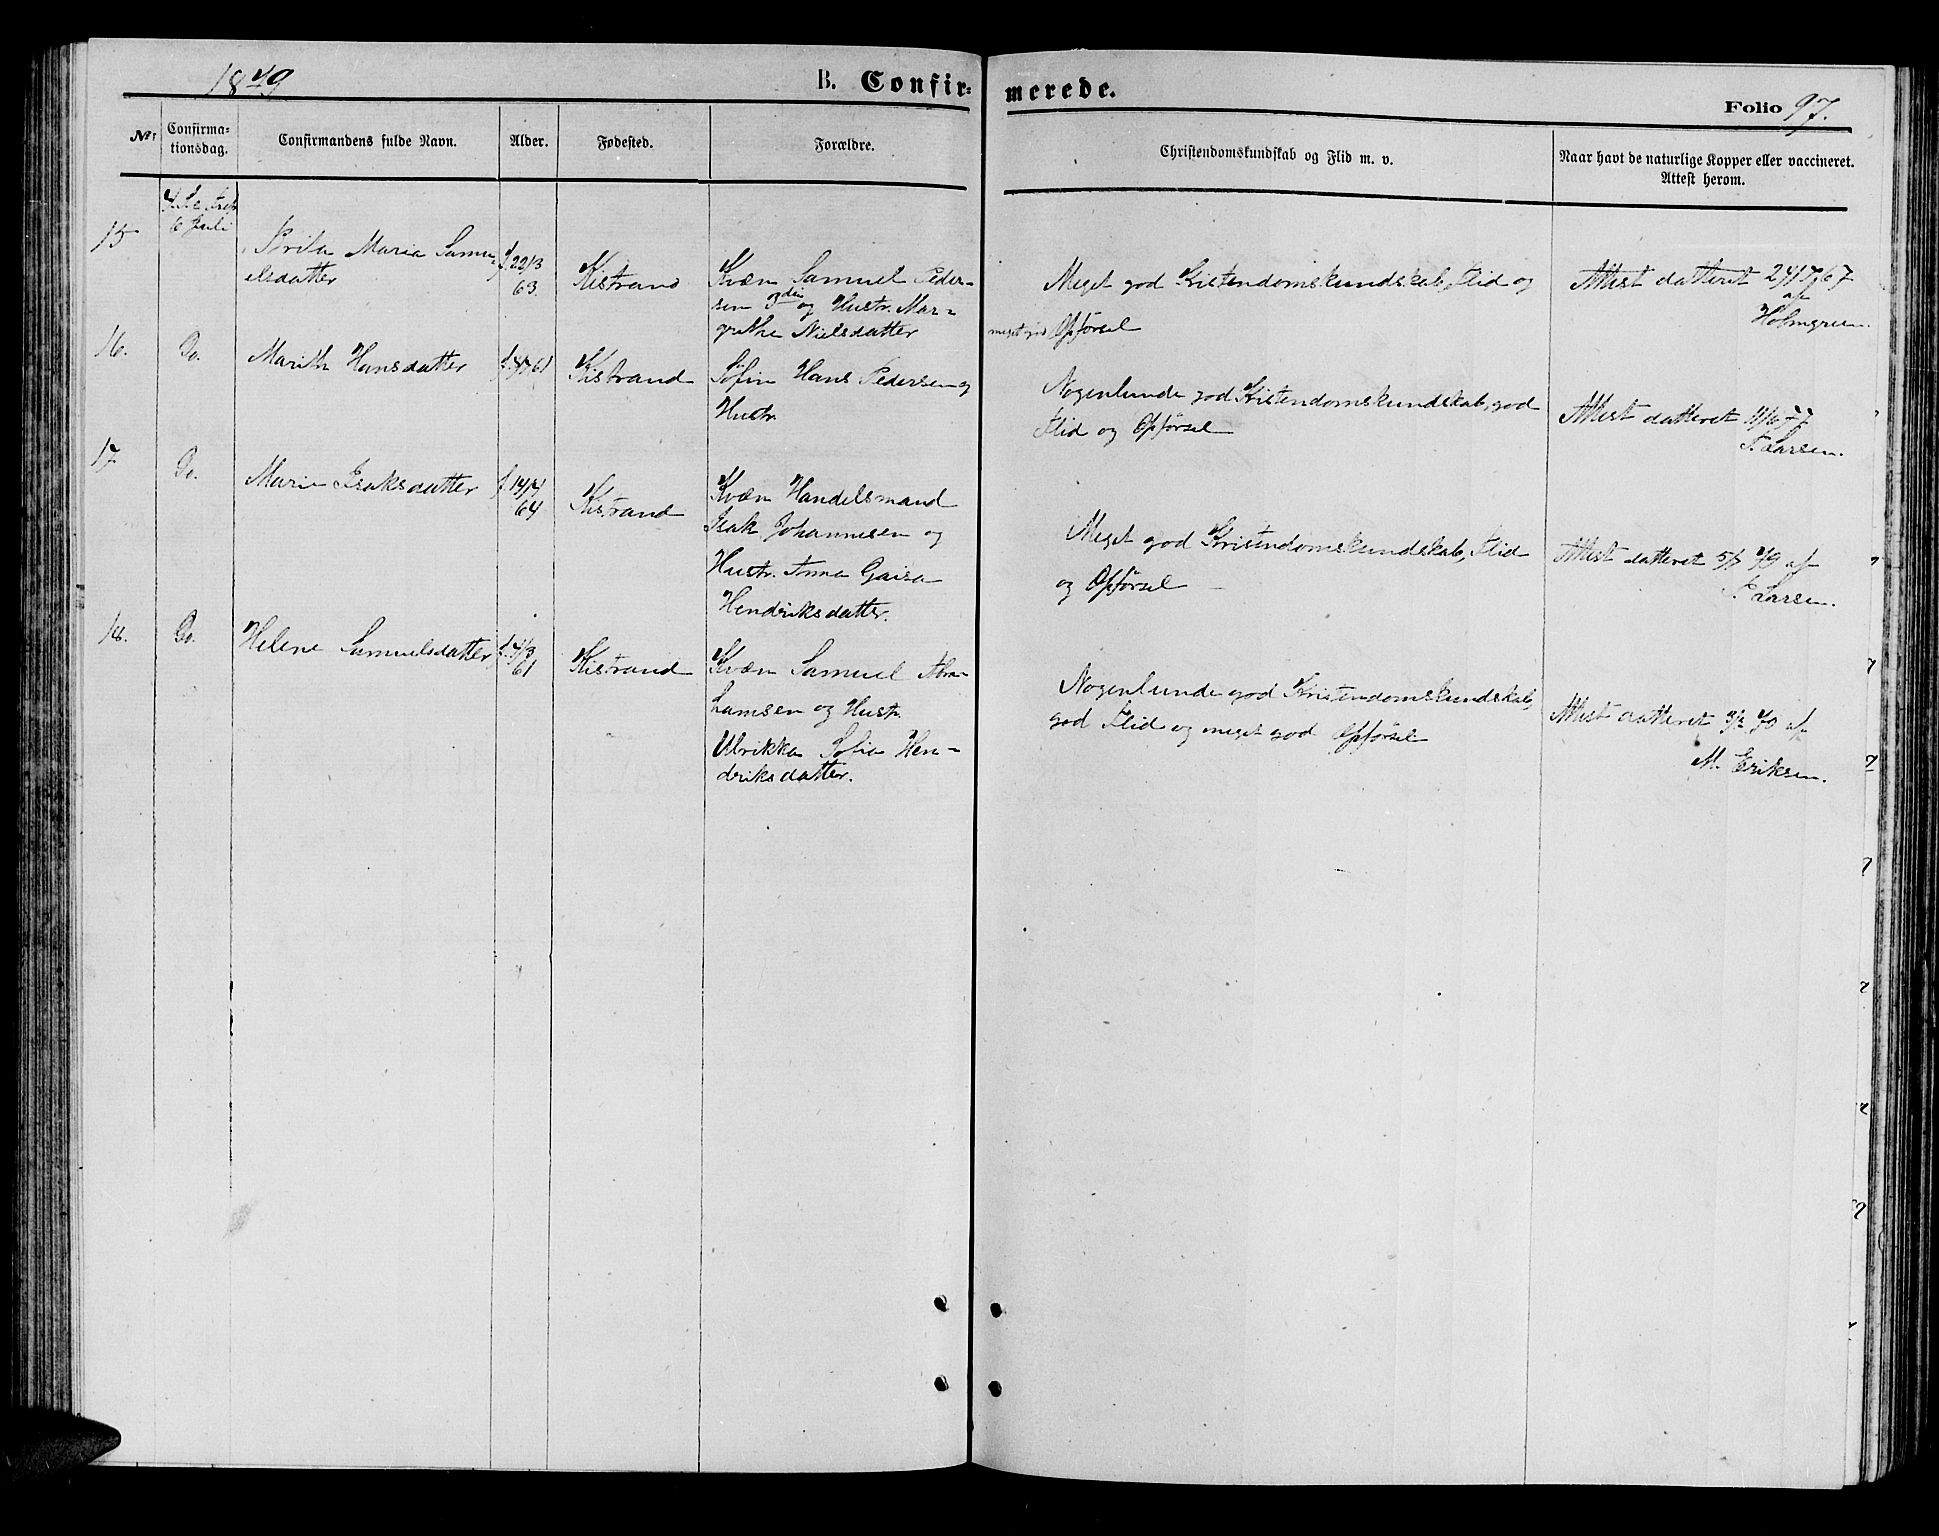 1879
B. Confir-
merede.
Folio 97.
No.
Confirma-
tionsdag.
Confirmandens fulde Navn.
Alder.
Fødested.
Forældre.
Christendomskundskab og Flid m. v.
Naar havt de naturlige Kopper eller vaccineret.
Attest herom.
15
6 Juli
Brita Maria Samu-
elsdatter
f. 22/3
63.
Kistrand
Kvæn Samuel Peder-
sen og Hustr. Mar-
grethe Nielsdatter
Meget god Kristendomskundskab, Flid og
meget god Opførsel
Attest datteret 24/7 67
af
Holmgren.
16.
Do.
Marith Hansdatter
Kistrand
Søfin Hans Pedersen og
Hustr.
Nogenlunde god Kristendomskundskab, god
Flid og Opførsel
Attest datteret 11/6 77
Larsen.
17
Do.
Marie Isaksdatter
f. 14/4
64
Kistrand
Kvæn Handelsmand
Isak Johannesen og
Hustr. Anna Gaisa
Hendriksdatter.
Meget god Kristendomskundskab, Flid
og Opførsel
Attest datteret 5/7 79 af
Larsen.
18.
Do.
Helene Samuelsdatter
f. 4/3
61
Kistrand
Kvæn Samuel Abra-
hamsen og Hustr.
Ulrikka Sofia Hen-
driksdatter.
Nogenlunde god Kristendomskundskab,
god Flid og meget god Opførsel
Attest datteret af
M. Eriksen.